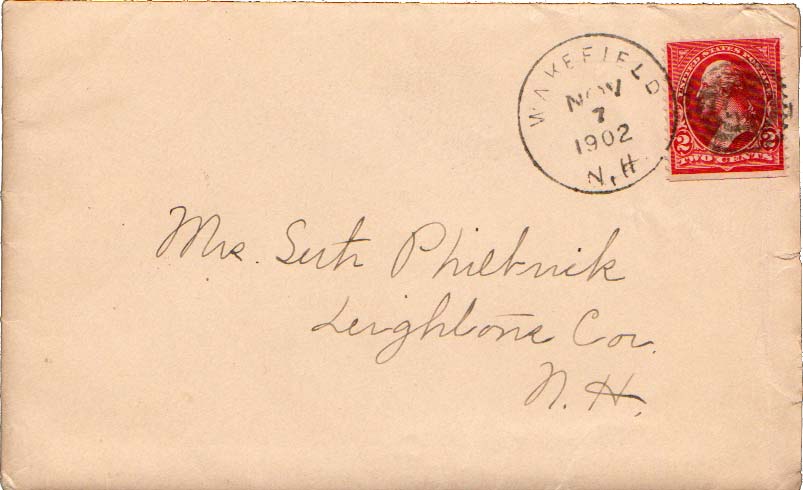 WAKEFIELD
NOV
7
1902
N.H.
UNITED STATES POSTAGE
2 2
TWO CENTS
Mrs. Seth Philbrick
Leightons Cor.
N. H.